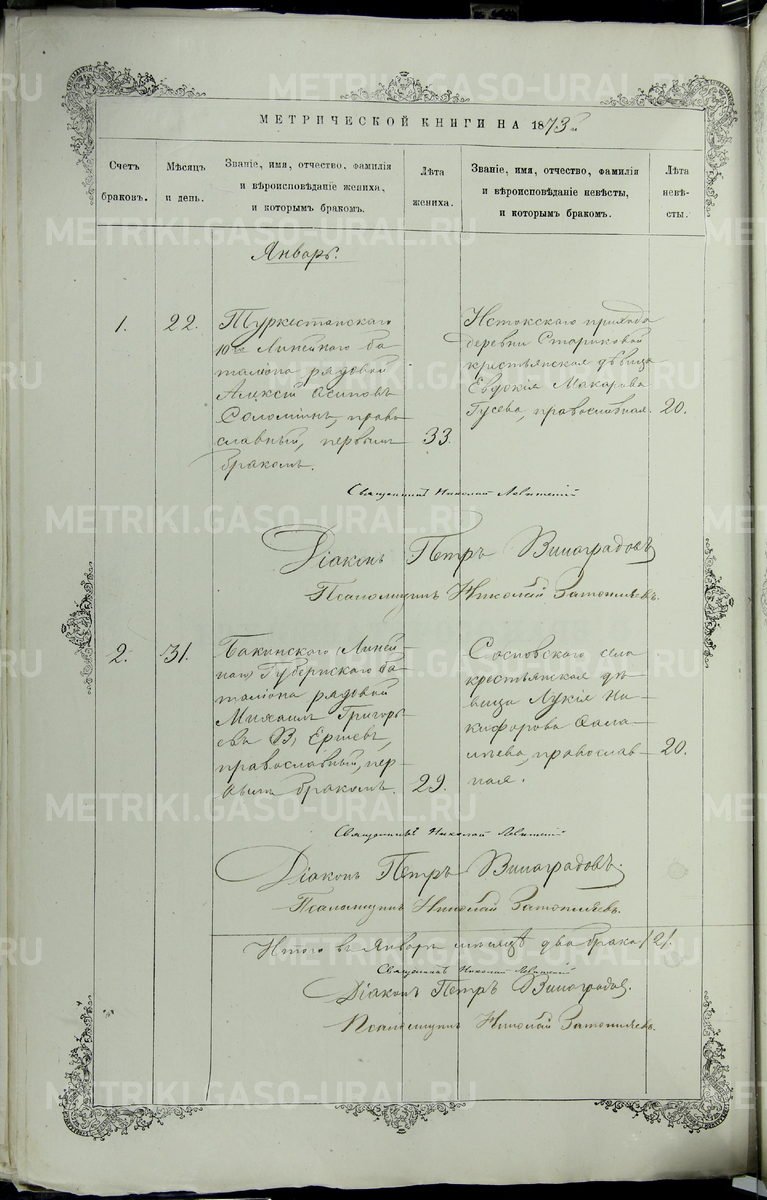 МЕТРИЧЕСКОЙ КНИГИ НА 1873й
Счетъ браковъ.
Мѣсяцъ и день.
Званіе, имя, отчество, фамилія
и вѣроисповѣданіе жениха,
и которымъ бракомъ.
Лѣта жениха.
Званіе, имя, отчество, фамилія
и вѣроисповѣданіе невѣсты,
и которымъ бракомъ.
Лѣта невѣсты.
Январь.
1.
22.
Туркестанскаго
10го Линейнаго ба-
таліона рядовой
Алексій Осиповъ
Соломинъ, право-
славный, первымъ
бракомъ.
33.
Истокскаго прихода
деревни Стариковой
крестьянская дѣвица
Евдокія Макарова
Гусева, православная.
20.
Священникъ Николай Левитскій
Діаконъ Петръ Виноградовъ
Псаломщикъ Николай Затопляевъ.
2.
31.
Бакинскаго
Губернскаго ба-
таліона рядовой
Михаилъ Григорь-
евъ Ершевъ,
православный, пер-
вымъ бракомъ.
29.
Сосновскаго села
крестьянская дѣ-
вица Лукія Ни-
кифорова
православ-
ная.
20.
Священникъ Николай Левитскій
Діаконъ Петръ Виноградовъ.
Псаломщикъ Николай Затопляевъ.
Итого въ Январѣ мѣсяцѣ два брака /2/.
Священникъ Николай Левитскій
Діаконъ Петръ Виноградовъ.
Псаломщикъ Николай Затопляевъ.
METRIKI.GASO-URAL.RU